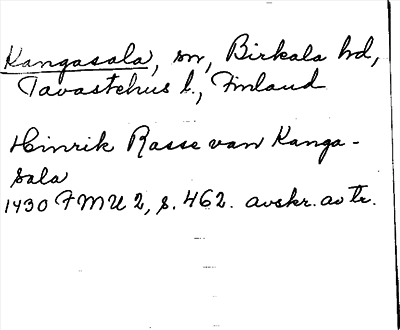 Kangasala, sn, Birkala hd,
Tavastehus l., Finland
Hinrik Rasse van Kanga-
sala
1430 FMU 2, s. 462. avskr. av tr.